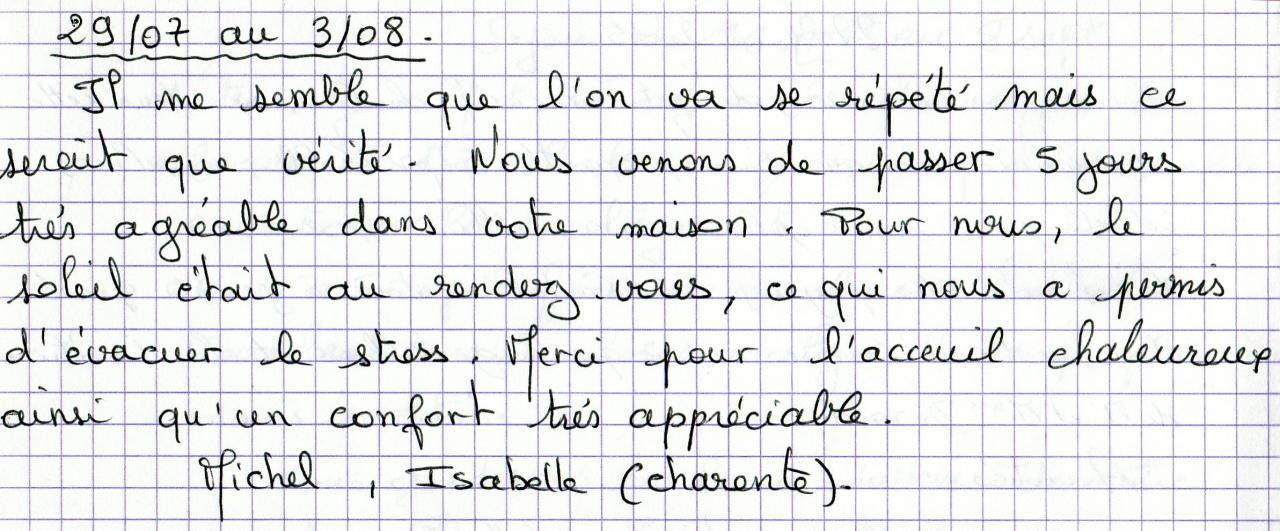 29/07 au 3/08.
Il me semble que l'on va se répété mais ce
serait que vérité. Nous venons de passer 5 jours
trés agréable dans votre maison. Pour nous, le
soleil était au rendez vous, ce qui nous a permis
d'évacuer le stress. Merci pour l'acceuil chaleureux
ainsi qu'un confort trés appréciable.
Michel, Isabelle (charente).